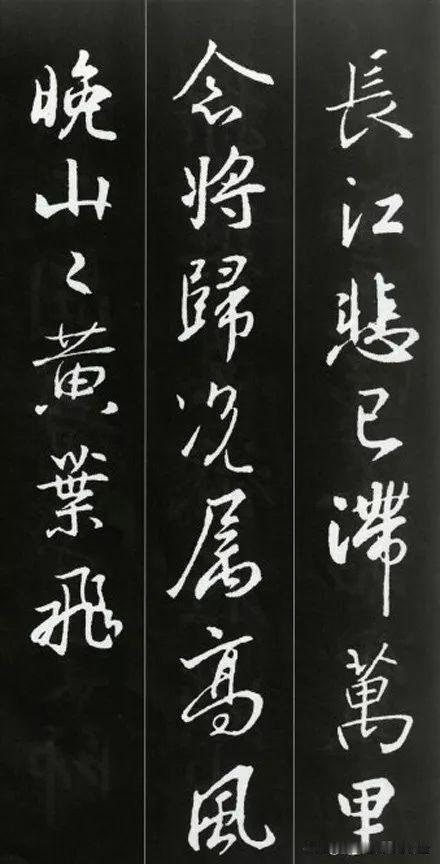 長江悲已滯萬里
念將歸況属高風
晚山〻黄葉飛